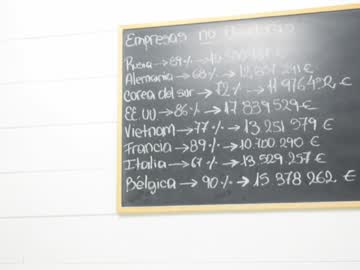 Empresas no
Rusia → 89% →
Alemania → 68% →
Corea del sur → 72% → 11 976 492 €
EE.UU → 86% → 17 839 529 €
Vietnam → 77% → 13 251 979 €
Francia → 89% → 10 700 290 €
Italia → 67% → 13 529 257 €
Bélgica → 90% → 15 378 262 €